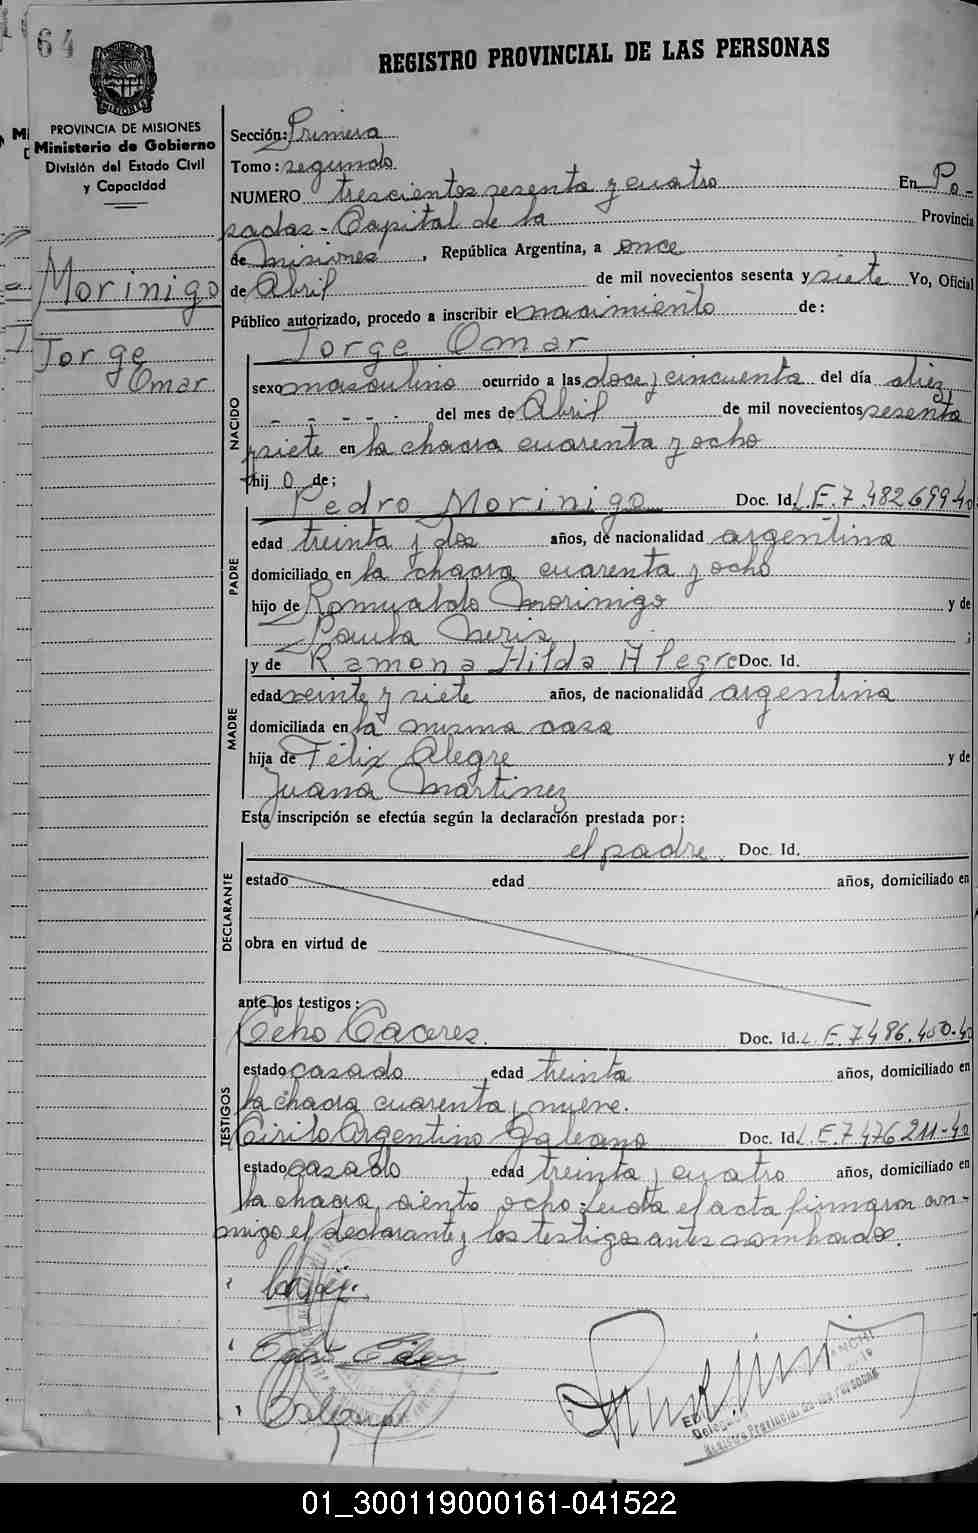 64
REGISTRO PROVINCIAL DE LAS PERSONAS
PROVINCIA DE MISIONES
Ministerio de Gobierno
División del Estado Civil
y Capacidad
Morinigo
Jorge
Omar
Sección: Primera
Tomo: segundo
NUMERO trescientos sesenta y cuatro En Po-
sadas - Capital de la Provincia
de Misiones, República Argentina, a once
de Abril de mil novecientos sesenta y siete Yo, Oficial
Público autorizado, procedo a inscribir el nacimiento de:
Jorge Omar
NACIDO
sexo masculino ocurrido a las doce y cincuenta del día diez
- - - - - del mes de Abril de mil novecientos sesenta
y siete en la chacra cuarenta y ocho
hijo de;
Pedro Morinigo Doc. Id. L.E.7.482.699-40
PADRE
edad treinta y dos años, de nacionalidad argentina
domiciliado en la chacra cuarenta y ocho
hijo de Romualdo Morinigo y de
Paula Neris ;
y de Ramona Hilda Alegre Doc. Id.
MADRE
edad veinte y siete años, de nacionalidad argentina
domiciliada en la misma casa
hija de Félix Alegre y de
Juana Martinez
Esta inscripción se efectúa según la declaración prestada por:
el padre. Doc. Id.
DECLARANTE
estado edad años, domiciliado en
obra en virtud de
ante los testigos:
Caceres. Doc. Id. L.E.7.486.450-40
TESTIGOS
estado casado edad treinta años, domiciliado en
la chacra cuarenta y nueve.
Cirilo Argentino Galeano Doc. Id. L.E.7.476.211-40
estado casado edad treinta y cuatro años, domiciliado en
la chacra ciento ocho: Leida el acta firmaron con-
migo el declarante y los testigos antes nombrados.
Registro Provincial de las Personas
01_300119000161-041522